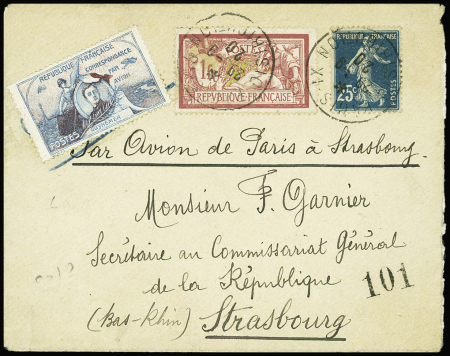 REPUBLIQUE FRANÇAISE
CORRESPONDANCE
PAR
AVION
POSTES
REPUBLIQUE FRANÇAISE
25c
Par Avion de Paris à Strasbourg
Monsieur F. Garnier
Secrétaire au Commissariat Général
de la République
101
(Bas-Rhin) Strasbourg